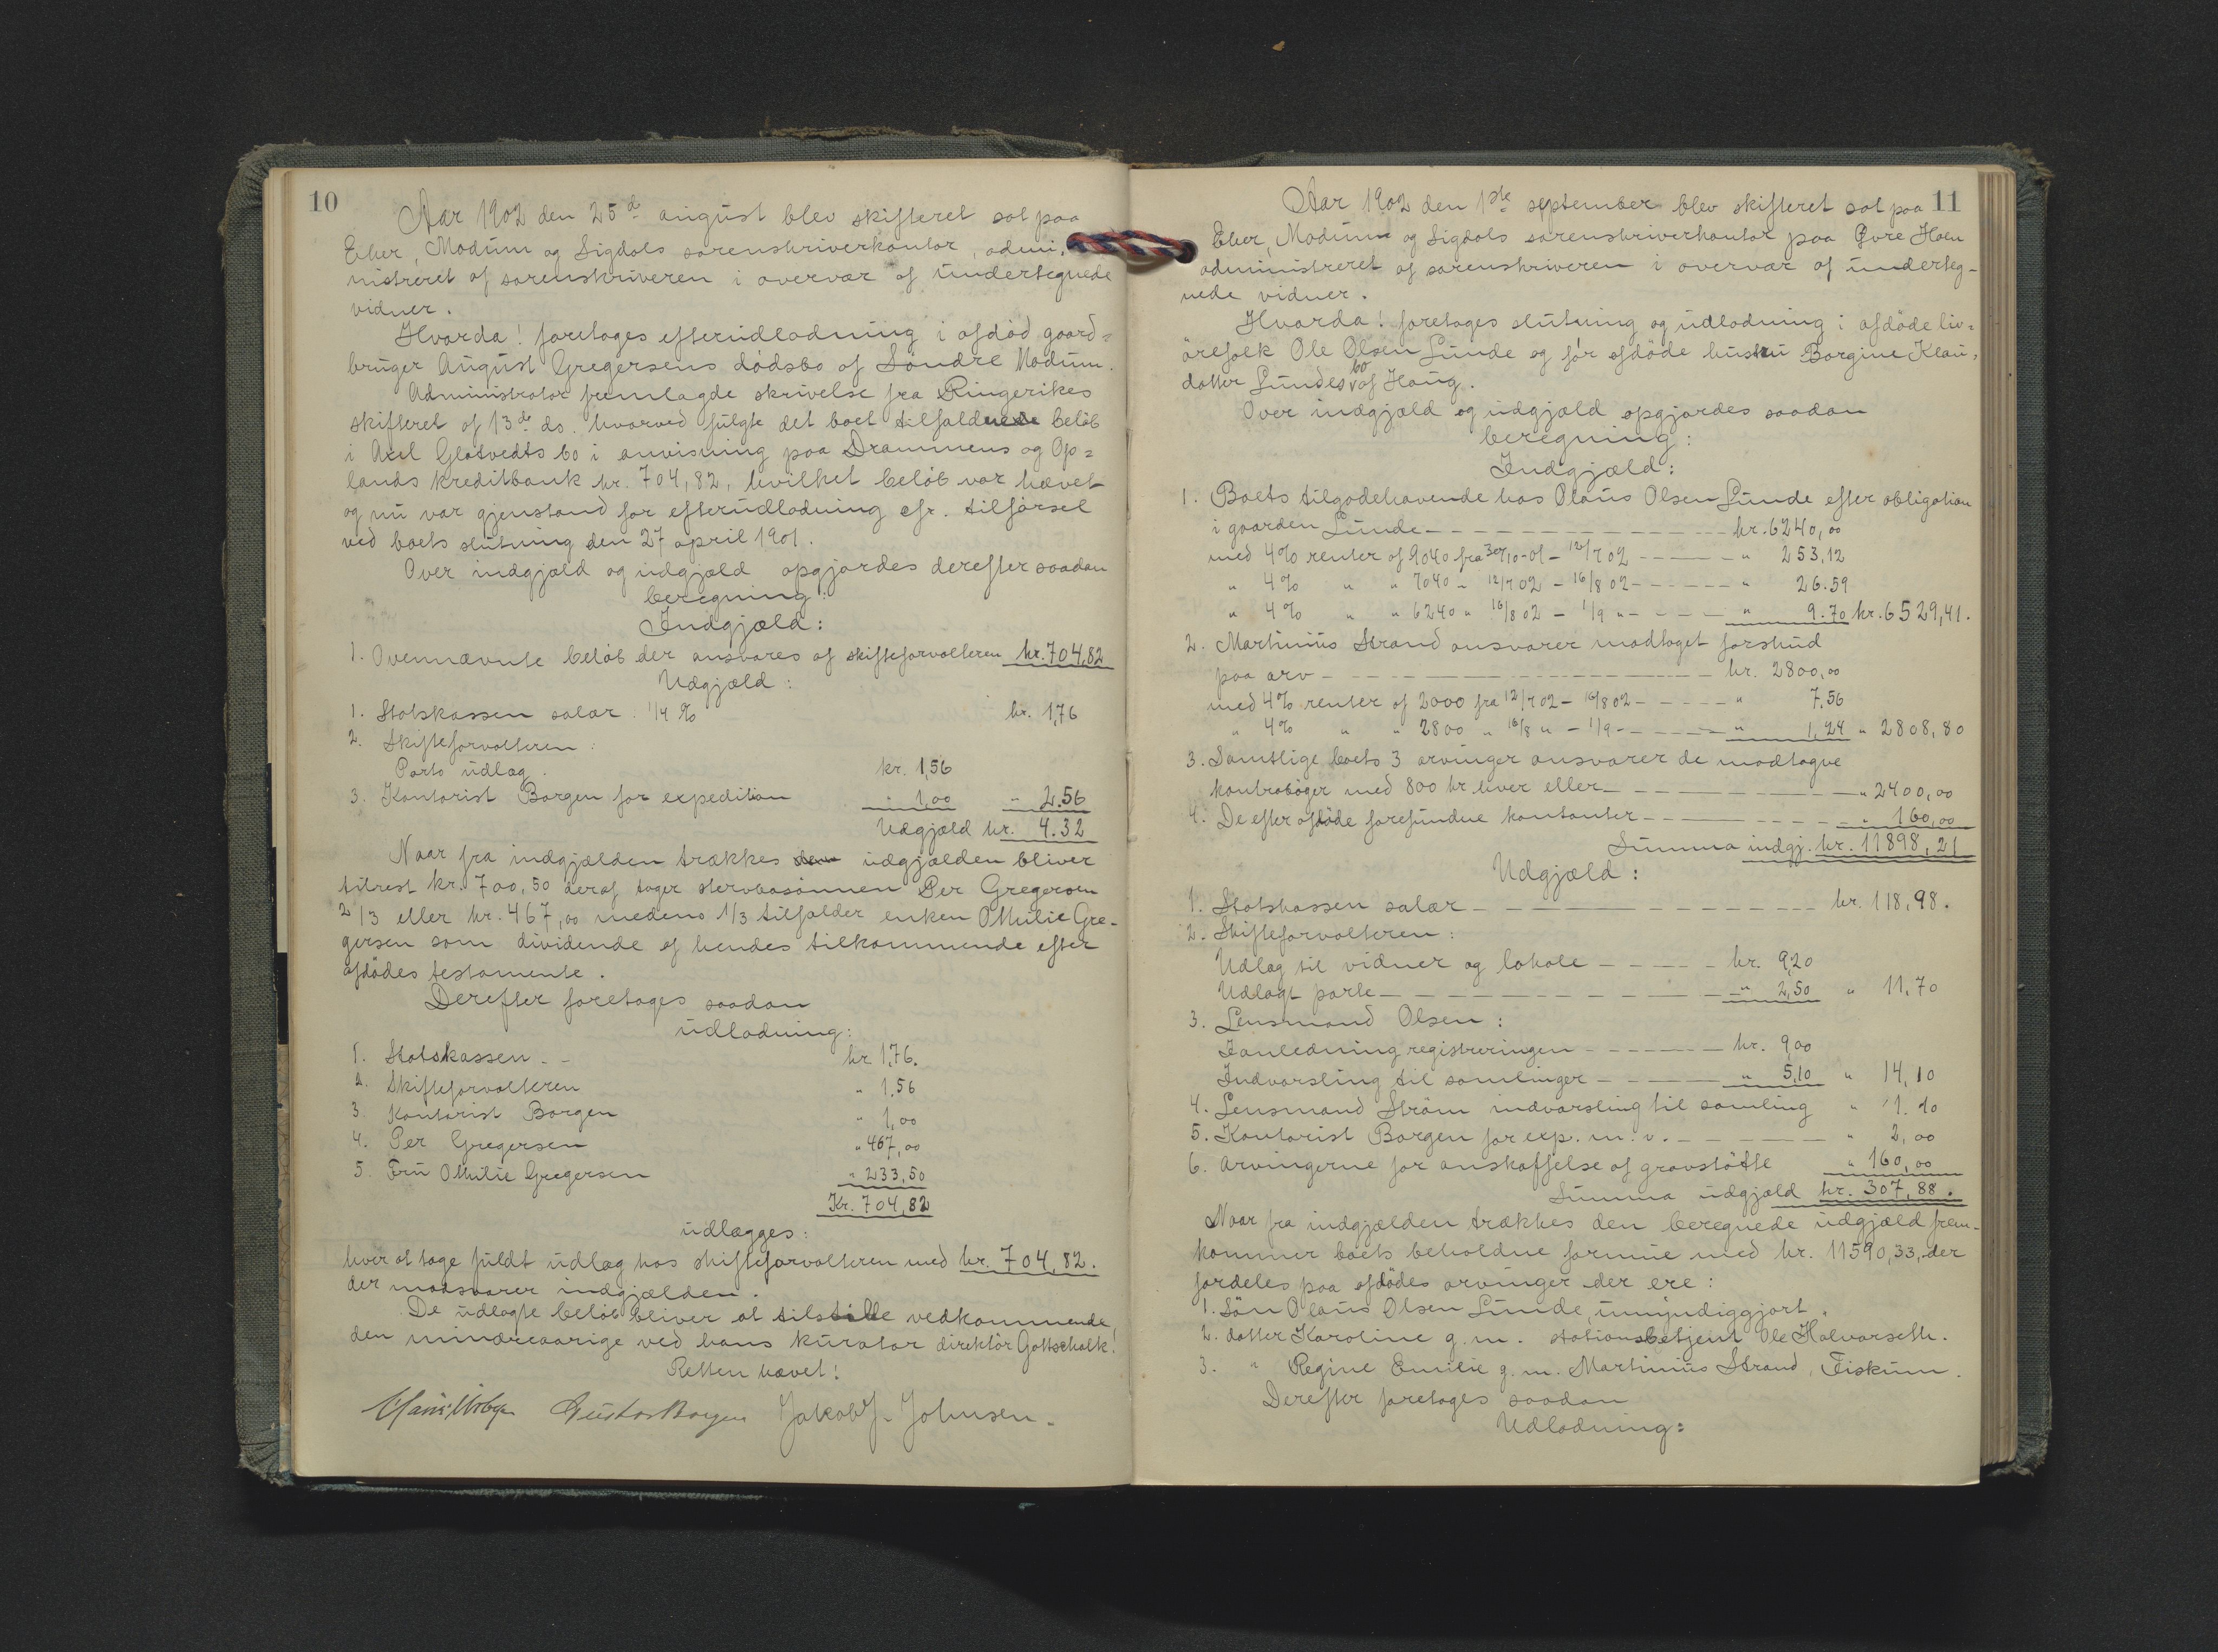 10
Aar 1902 den 25de august blev skifteret sat paa
Eker, Modum og Sigdals sorenskriverkontor, admi-
nistreret af sorenskriveren i overvær af undertegnede
vidner.
Hvorda! foretoges efterudlodning i afdød gaard-
bruger August Gregersens dødsbo af Søndre Modum.
Administrator fremlagde skrivelse fra Ringerikes
skifteret af 13de ds. hvorved fulgte det boet tilfaldne beløb
i Axel Glatvedts bo i anvisning paa Drammens og Op-
lands kreditbank kr. 704,82, hvilket beløb var hævet
og nu var gjenstand for efterudlodning cfr. tilførsel
ved boets slutning den 27 april 1901.
Over indgjæld og udgjæld opgjordes derefter saadan
beregning:
Indgjæld:
1. Ovennævnte beløb der ansvares af skifteforvalteren kr. 704,82
Udgjæld:
1. Statskassen salær 1/4 % kr. 1,76
2. Skifteforvalteren:
Porto udlæg. kr. 1,56
3. Kontorist Borgen for expedition - 1,00 - 2.56
Udgjæld kr. 4.32
Naar fra indgjælden trækkes den udgjælden bliver
tilrest kr. 700,50 deraf tager stervbosønnen Per Gregersen
2/3 eller kr. 467,00 medens 1/3 tilfalder enken Othilie Gre-
gersen som dividende af hendes tilkommende efter
afdødes testamente.
Derefter foretoges saadan
udlodning:
1. Statskassen - - kr 1,76.
2. Skifteforvalteren " 1,56
3. Kontorist Borgen " 1,00
4. Per Gregersen " 467,00
5. Fru Othilie Gregersen " 233,50
Kr. 704,82
udlægges:
hver at tage fuldt udlæg hos skifteforvalteren med kr. 704,82.
der modsvarer indgjælden.
De udlagte beløb bliver at tilstille vedkommende,
den mindreaarige ved hans kurator direktør Gottschalk!
Retten hævet!
Gustav Borgen Jakob J. Johnsen.
11
Aar 1902 den 1ste september blev skifteret sat paa
Eker, Modum og Sigdals sorenskriverkontor paa Øvre Hoen
administreret af sorenskriveren i overvær af underteg-
nede vidner.
Hvorda! foretoges slutning og udlodning i afdøde liv-
ørefolk Ole Olsen Lunde og før afdøde hustru Borgine Klau-
datter Lundes bo af Haug.
Over indgjæld og udgjæld opgjordes saadan
beregning:
Indgjæld:
1. Boets tilgodehavende hos Olaus Olsen Lunde efter obligation
i gaarden Lunde - - - kr. 6240,00
med 4% renter af 9040 fra 30/10-01 - 12/7 02 - - - " 253,12
" 4% " " 7040 - 12/7 02 - 16/8 02 - - - " 26.59
" 4% " " 6240 " 16/8 02 - 1/9 " - - - " 9.70 kr. 6529,41.
2. Martinius Strand ansvarer modtaget forskud
paa arv - - - kr. 2800,00
med 4% renter af 2000 fra 12/7 02 - 16/8 02 - - - " 7.56
" 4% " " 2800 " 16/8 " - 1/9 - - - " 1,24 " 2808,80
3. Samtlige boets 3 arvinger ansvarer de modtagne
kontrabøger med 800 kr hver eller - - - " 2400,00
4. De efter afdøde forefundne kontanter - - - " 160,00
Summa indgj. kr. 11898,21
Udgjæld:
1. Statskassen salær - - - kr. 118,98.
2. Skifteforvalteren:
Udlæg til vidner og lokale - - - kr. 9,20
Udlagt porto - - - " 2,50 " 11,70
3. Lensmand Olsen:
I anledning registreringen - - - kr. 9,00
Indvarsling til samlinger - - - " 5,10 " 14,10
4. Lensmand Strøm indvarsling til samling " 1.10
5. Kontorist Borgen for exp. m. v. - - - " 2,00
6. Arvingerne for anskaffelse af gravstøtte " 160,00
Summa udgjæld kr. 307,88.
Naar fra indgjælden trækkes den beregnede udgjæld frem-
kommer boets beholdne formue med kr. 11590,33, der
fordeles paa afdødes arvinger der ere:
1. Søn Olaus Olsen Lunde, umyndiggjort.
2. datter Karoline g. m. stationsbetjent Ole Halvorseth.
3. " Regine Emilie g. m. Martinius Strand, Fiskum.
Derefter foretoges saadan
Udlodning: